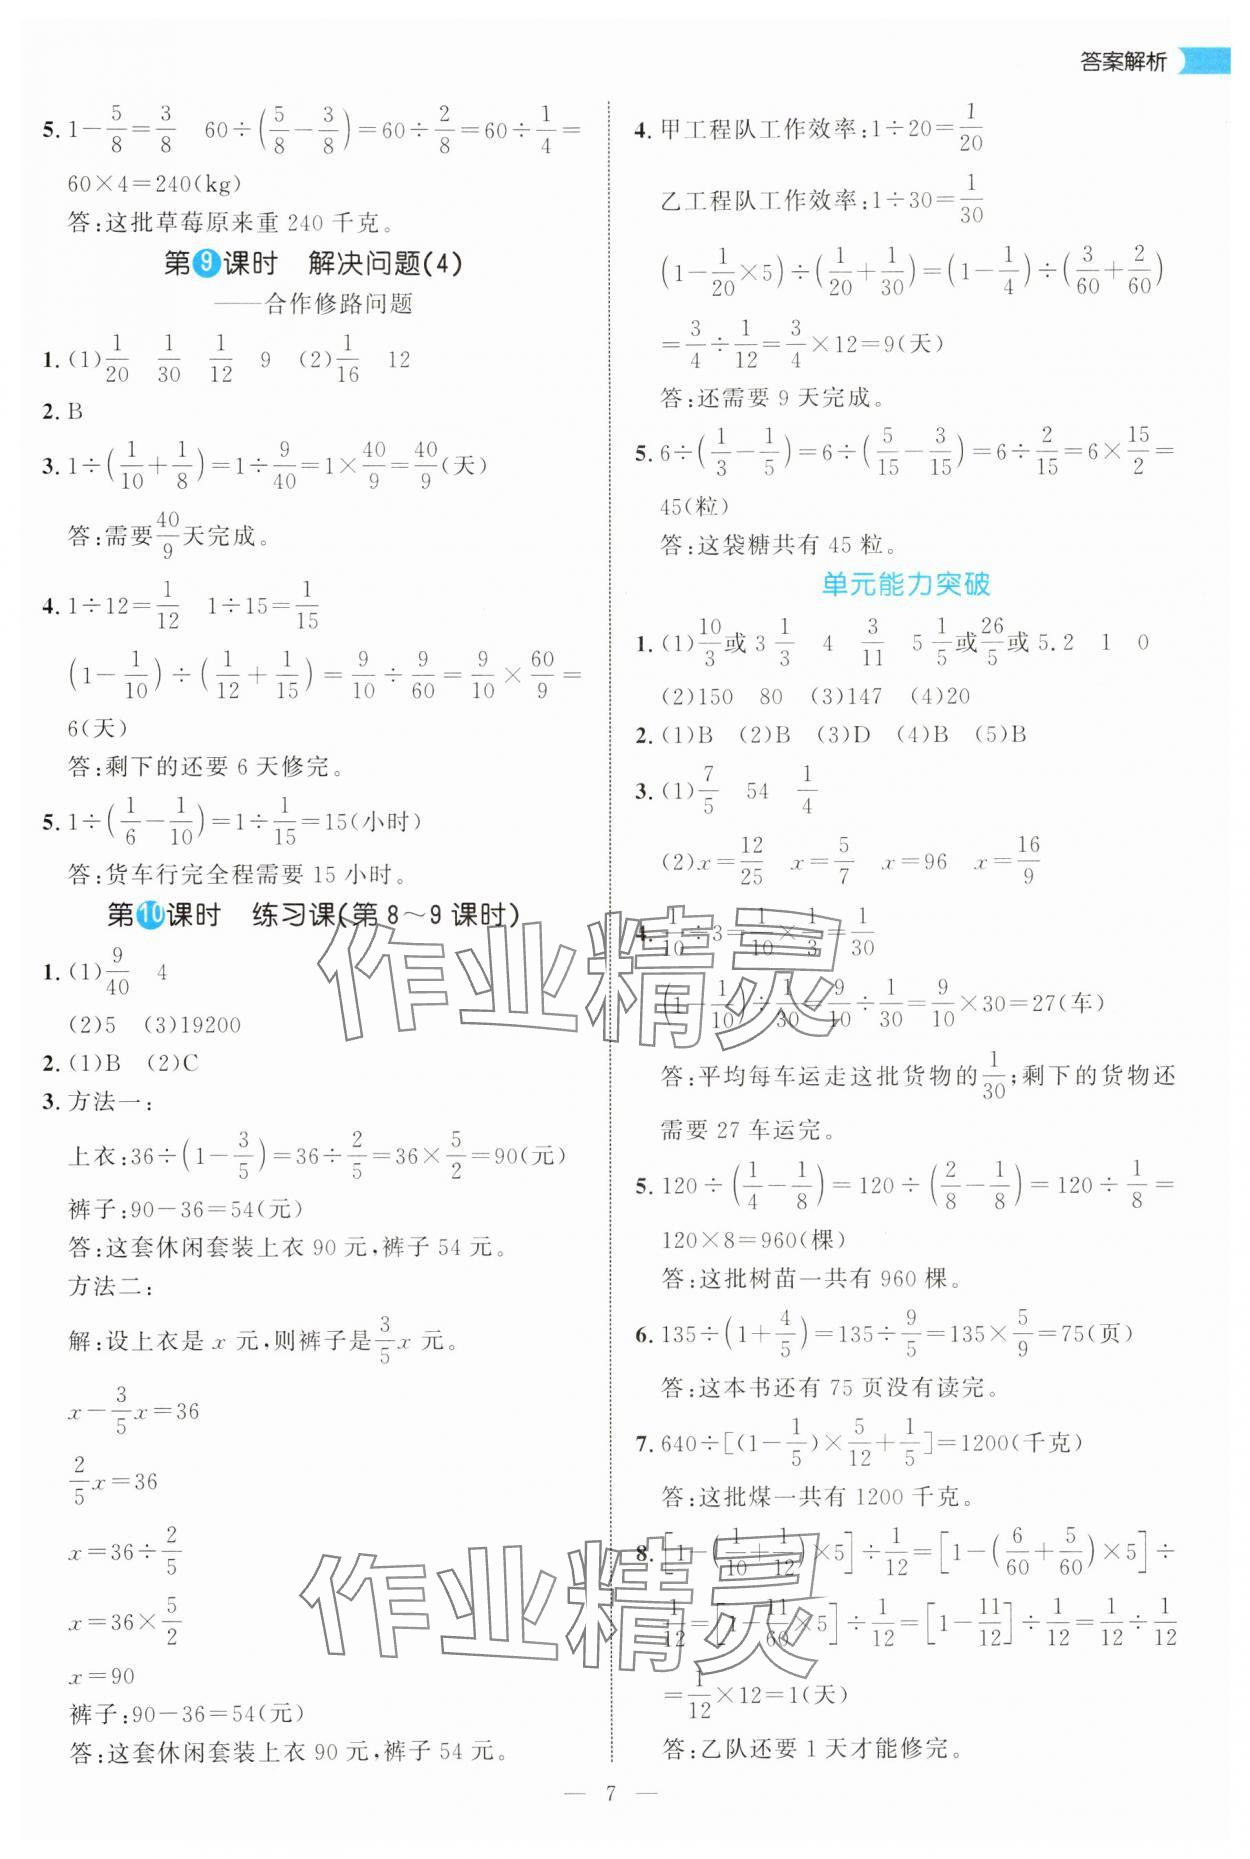 答案解析
5. 1－5/8＝3/8　60÷(5/8－3/8)＝60÷2/8＝60÷1/4＝
60×4＝240(kg)
答:这批草莓原来重 240 千克。
第9课时　解决问题(4)
——合作修路问题
1. (1)1/20　1/30　1/12　9　(2)1/16　12
2. B
3. 1÷(1/10＋1/8)＝1÷9/40＝1×40/9＝40/9(天)
答:需要40/9天完成。
4. 1÷12＝1/12　1÷15＝1/15
(1－1/10)÷(1/12＋1/15)＝9/10÷9/60＝9/10×60/9＝
6(天)
答:剩下的还要 6 天修完。
5. 1÷(1/6－1/10)＝1÷1/15＝15(小时)
答:货车行完全程需要 15 小时。
第10课时　练习课(第 8～9 课时)
1. (1)9/40　4
(2)5　(3)19200
2. (1)B　(2)C
3. 方法一:
上衣:36÷(1－3/5)＝36÷2/5＝36×5/2＝90(元)
裤子:90－36＝54(元)
答:这套休闲套装上衣 90 元,裤子 54 元。
方法二:
解:设上衣是 x 元,则裤子是3/5x 元。
x－3/5x＝36
2/5x＝36
x＝36÷2/5
x＝36×5/2
x＝90
裤子:90－36＝54(元)
答:这套休闲套装上衣 90 元,裤子 54 元。
4. 甲工程队工作效率:1÷20＝1/20
乙工程队工作效率:1÷30＝1/30
(1－1/20×5)÷(1/20＋1/30)＝(1－1/4)÷(3/60＋2/60)
＝3/4÷1/12＝3/4×12＝9(天)
答:还需要 9 天完成。
5. 6÷(1/3－1/5)＝6÷(5/15－3/15)＝6÷2/15＝6×15/2＝
45(粒)
答:这袋糖共有 45 粒。
单元能力突破
1. (1)10/3或 3 1/3　4　3/11　5 1/5或26/5或 5.2　1　0
(2)150　80　(3)147　(4)20
2. (1)B　(2)B　(3)D　(4)B　(5)B
3. (1)7/5　54　1/4
(2)x＝12/25　x＝5/7　x＝96　x＝16/9
4. 1/10÷3＝1/10×1/3＝1/30
(1－1/10)÷1/30＝9/10÷1/30＝9/10×30＝27(车)
答:平均每车运走这批货物的1/30;剩下的货物还
需要 27 车运完。
5. 120÷(1/4－1/8)＝120÷(2/8－1/8)＝120÷1/8＝
120×8＝960(棵)
答:这批树苗一共有 960 棵。
6. 135÷(1＋4/5)＝135÷9/5＝135×5/9＝75(页)
答:这本书还有 75 页没有读完。
7. 640÷[(1－1/5)×5/12＋1/5]＝1200(千克)
答:这批煤一共有 1200 千克。
8. [1－(1/10＋1/12)×5]÷1/12＝[1－(6/60＋5/60)×5]÷
1/12＝[1－11/60×5]÷1/12＝[1－11/12]÷1/12＝1/12÷1/12
＝1/12×12＝1(天)
答:乙队还要 1 天才能修完。
作业精灵
作业精灵
— 7 —